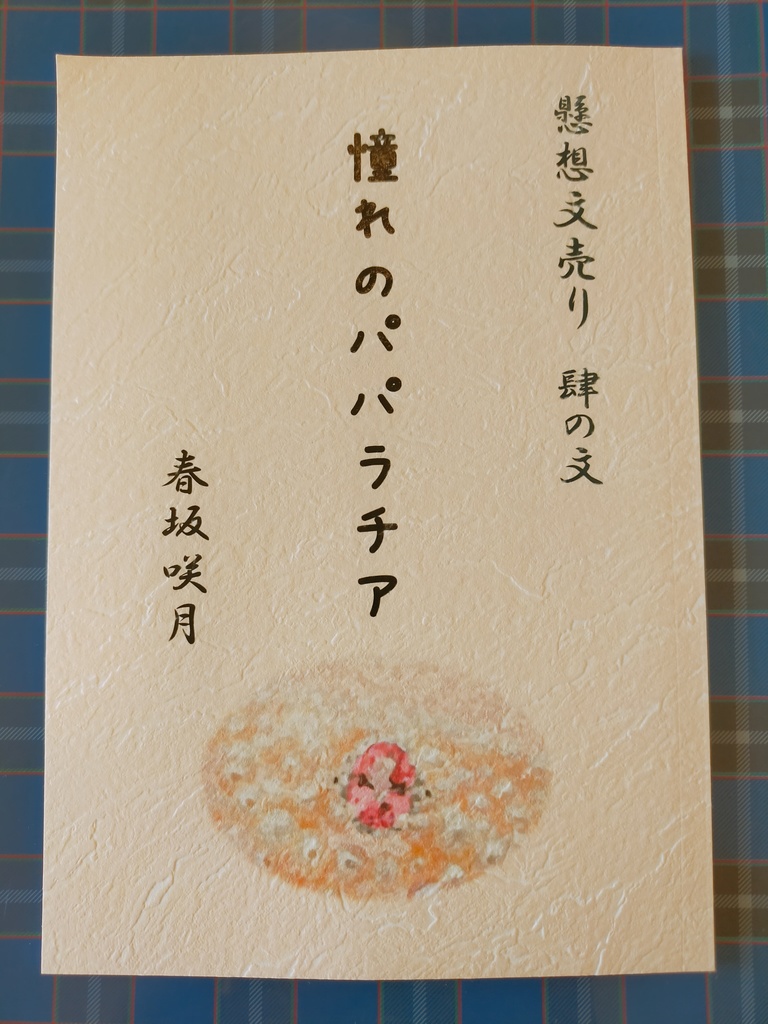 懸想文売り　肆の文
憧れのパパラチア
春坂咲月